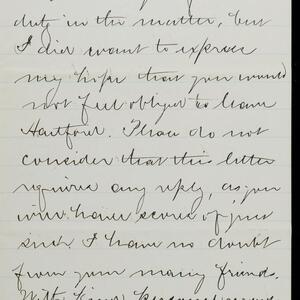 duty in the matter, but
I did want to express
my hope that you would
not feel obliged to leave
Hartford. Please do not
consider that this letter
requires any reply, as you
will have scores of just
such I have no doubt
from your many friends.
With kind